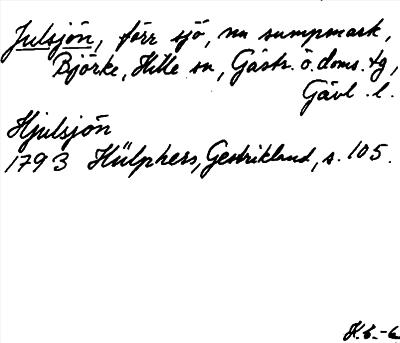 Julsjön, förr sjö, nu sumpmark,
Björke, Hille sn, Gästr. ö. doms. tg,
Gävl. l.
Hjulsjön
1793 Hülphers, Gestrikland, s. 105.